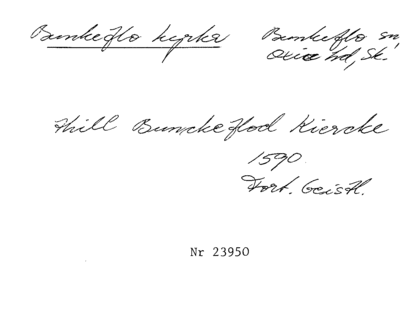 Bunkeflo kyrka
Bunkeflo sn,
Oxie hd, Sk.
Thill Bunckeflod Kiercke
1590
Fort. Geistl.
Nr 23950